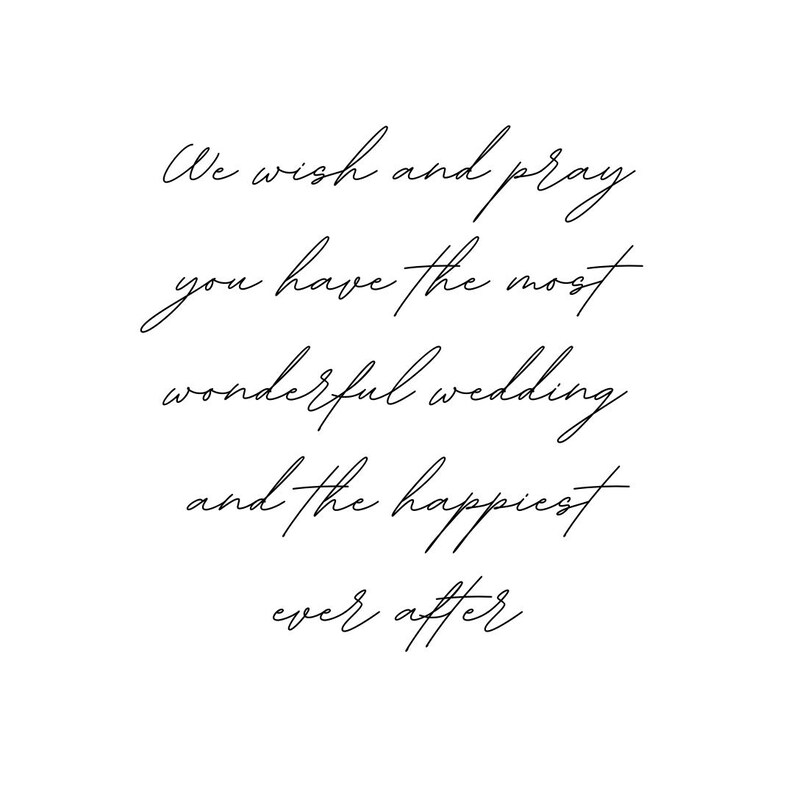 We wish and pray
you have the most
wonderful wedding
and the happiest
ever after